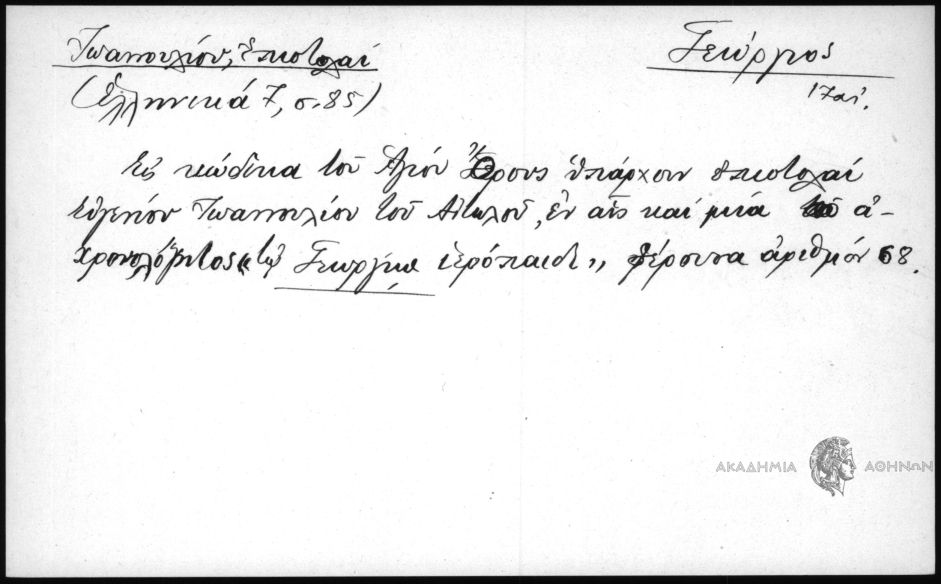 Ἰωαννουλίου, ἐπιστολαί
Γεώργιος
(Ἑλληνικά 7, σ. 85)
17 αἰ.
Εἰς κώδικα τοῦ Ἁγίου Ὄρους ὑπάρχουν ἐπιστολαί
Εὐγενίου Ἰωαννουλίου τοῦ Αἰτωλοῦ, ἐν αἷς καί μία ἀ-
χρονολόγητος «τῷ Γεωργίῳ ἱερόπαιδι», φέρουσα ἀριθμόν 68.
ΑΚΑΔΗΜΙΑ ΑΘΗΝΩΝ